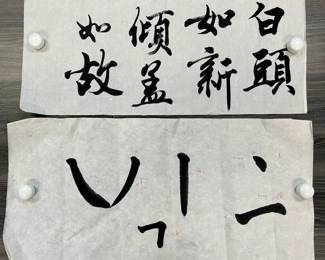 白頭
如新
傾蓋
如故